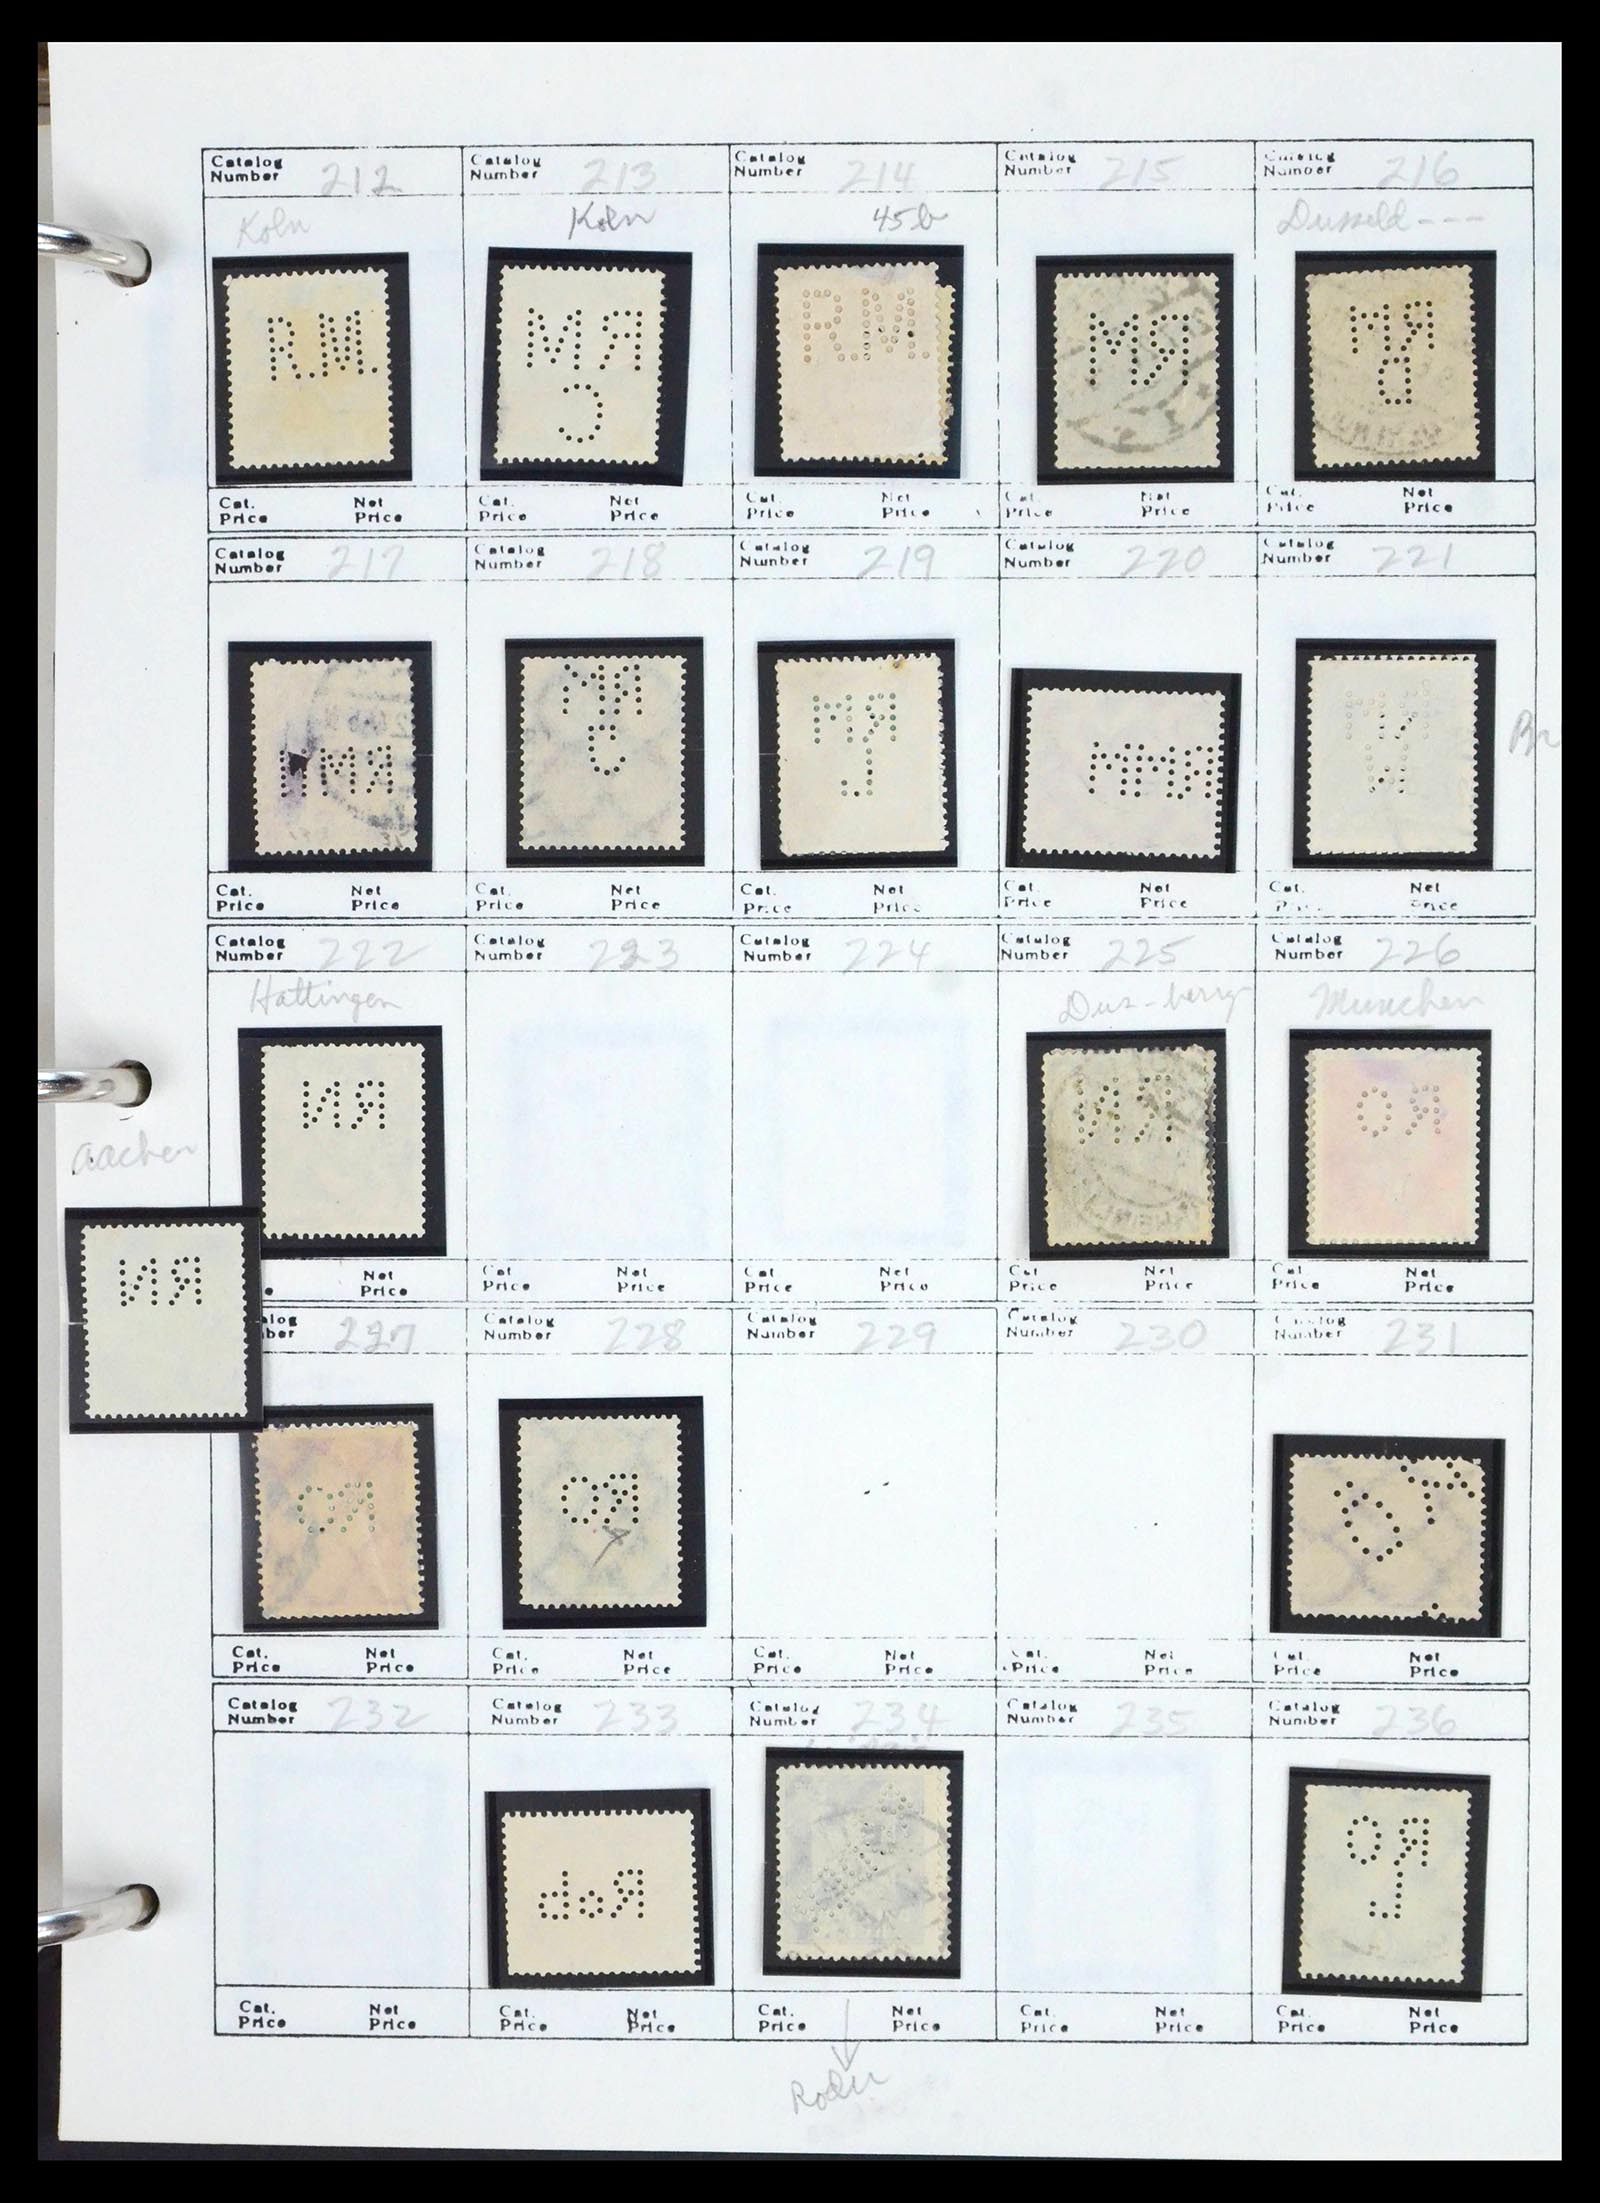 Catalog Number 212 Catalog Number 213 Catalog Number 214 Catalog Number 215 Catalog Number 216
Koln Koln 45b Dusseld---
R.M. MR R.M. MR MR
C B
Cat. Price Net Price Cat. Price Net Price Cat. Price Net Price Cat. Price Net Price Cat. Price Net Price
Catalog Number 217 Catalog Number 218 Catalog Number 219 Catalog Number 220 Catalog Number 221
MR MR MMR
L
Br
Cat. Price Net Price Cat. Price Net Price Cat. Price Net Price Cat. Price Net Price Cat. Price Net Price
Catalog Number 222 Catalog Number 223 Catalog Number 224 Catalog Number 225 Catalog Number 226
Hattingen Munchen
NR NR OR
Aachen
NR
Net Price Cat. Price Net Price Cat. Price Net Price Cat. Price Net Price Cat. Price Net Price
227 Catalog Number 228 Catalog Number 229 Catalog Number 230 Catalog Number 231
OR OR
Cat. Price Net Price Cat. Price Net Price Cat. Price Net Price Cat. Price Net Price Cat. Price Net Price
Catalog Number 232 Catalog Number 233 Catalog Number 234 Catalog Number 235 Catalog Number 236
doR OR
L
Cat. Price Net Price Cat. Price Net Price Cat. Price Net Price Cat. Price Net Price Cat. Price Net Price